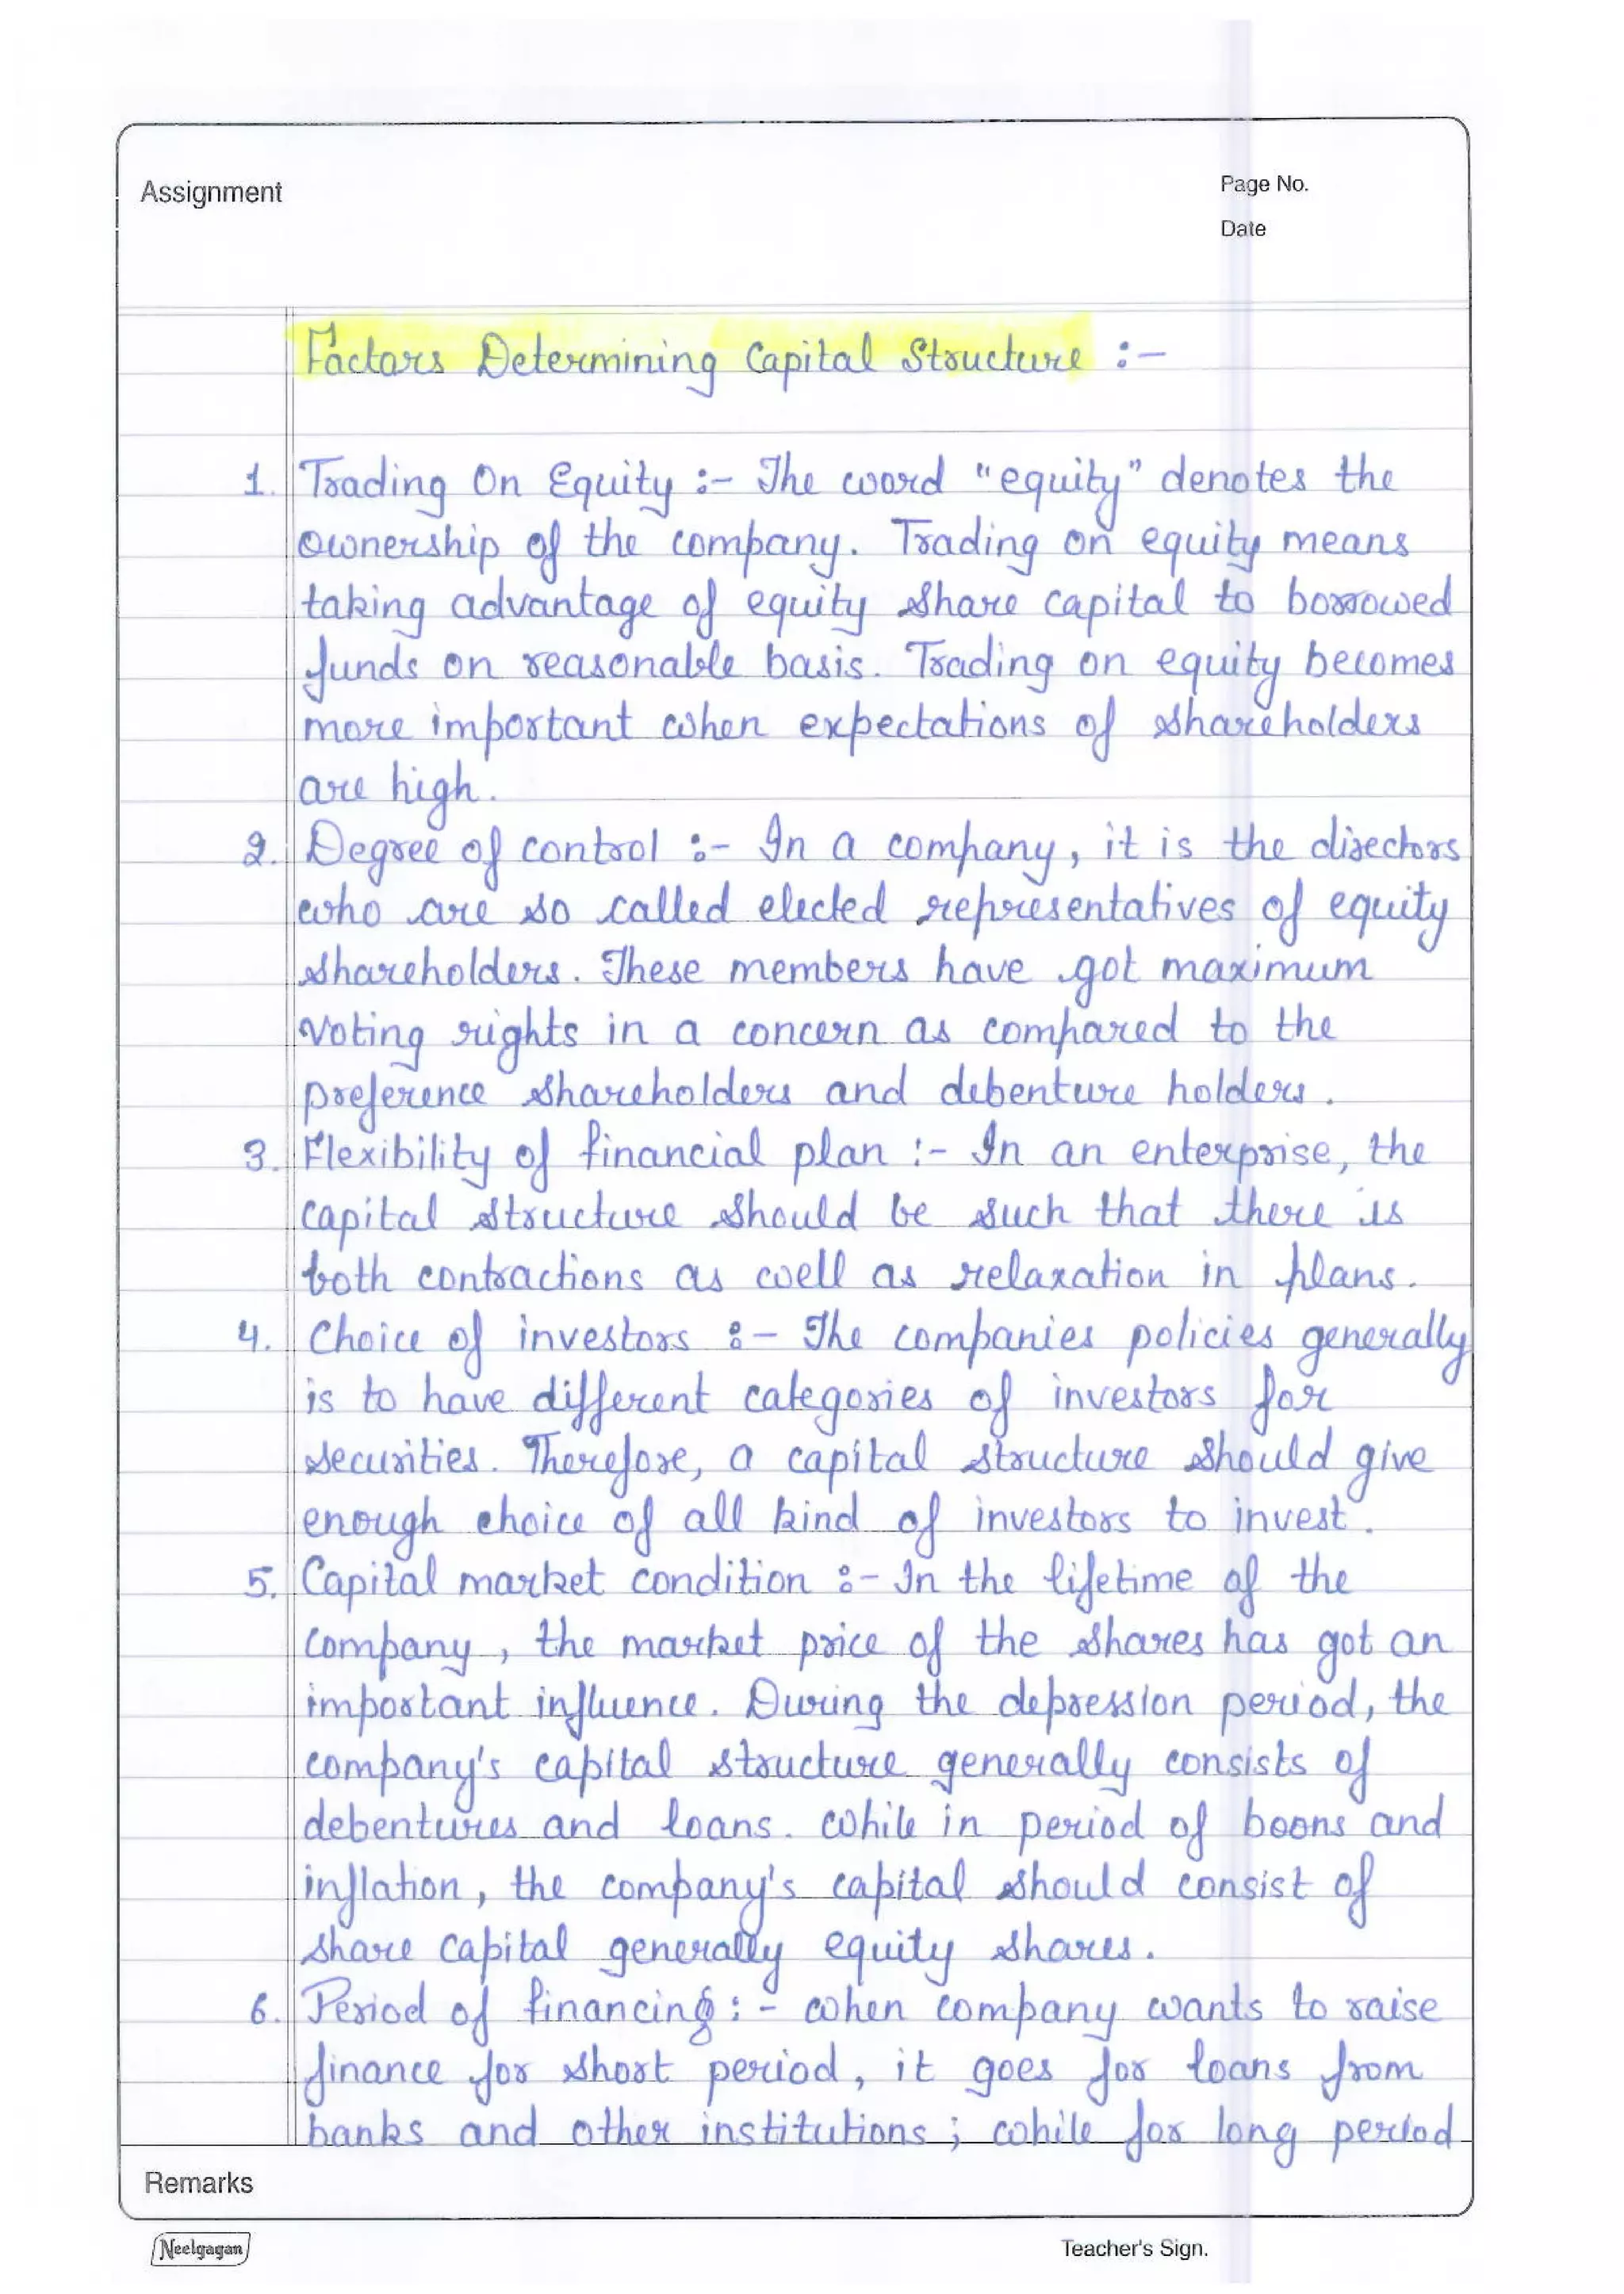 Assignment
Page No.
Date
Factors Determining Capital Structure :-
1. Trading On Equity :- The word "equity" denotes the
ownership of the company. Trading on equity means
taking advantage of equity share capital to borrowed
funds on reasonable basis. Trading on equity becomes
more important when expectations of shareholders
are high.
2. Degree of control :- In a company, it is the directors
who are so called elected representatives of equity
shareholders. These members have got maximum
voting rights in a concern as compared to the
preference shareholders and debenture holders.
3. Flexibility of financial plan :- In an enterprise, the
capital structure should be such that there is
both contractions as well as relaxation in plans.
4. Choice of investors :- The companies policies generally
is to have different categories of investors for
securities. Therefore, a capital structure should give
enough choice of all kind of investors to invest.
5. Capital market condition :- In the lifetime of the
company, the market price of the shares has got an
important influence. During the depression period, the
company's capital structure generally consists of
debentures and loans. While in period of boons and
inflation, the company's capital should consist of
share capital generally equity shares.
6. Period of financing :- when company wants to raise
finance for short period, it goes for loans from
banks and other institutions; while for long period
Remarks
Neelgagan
Teacher's Sign.